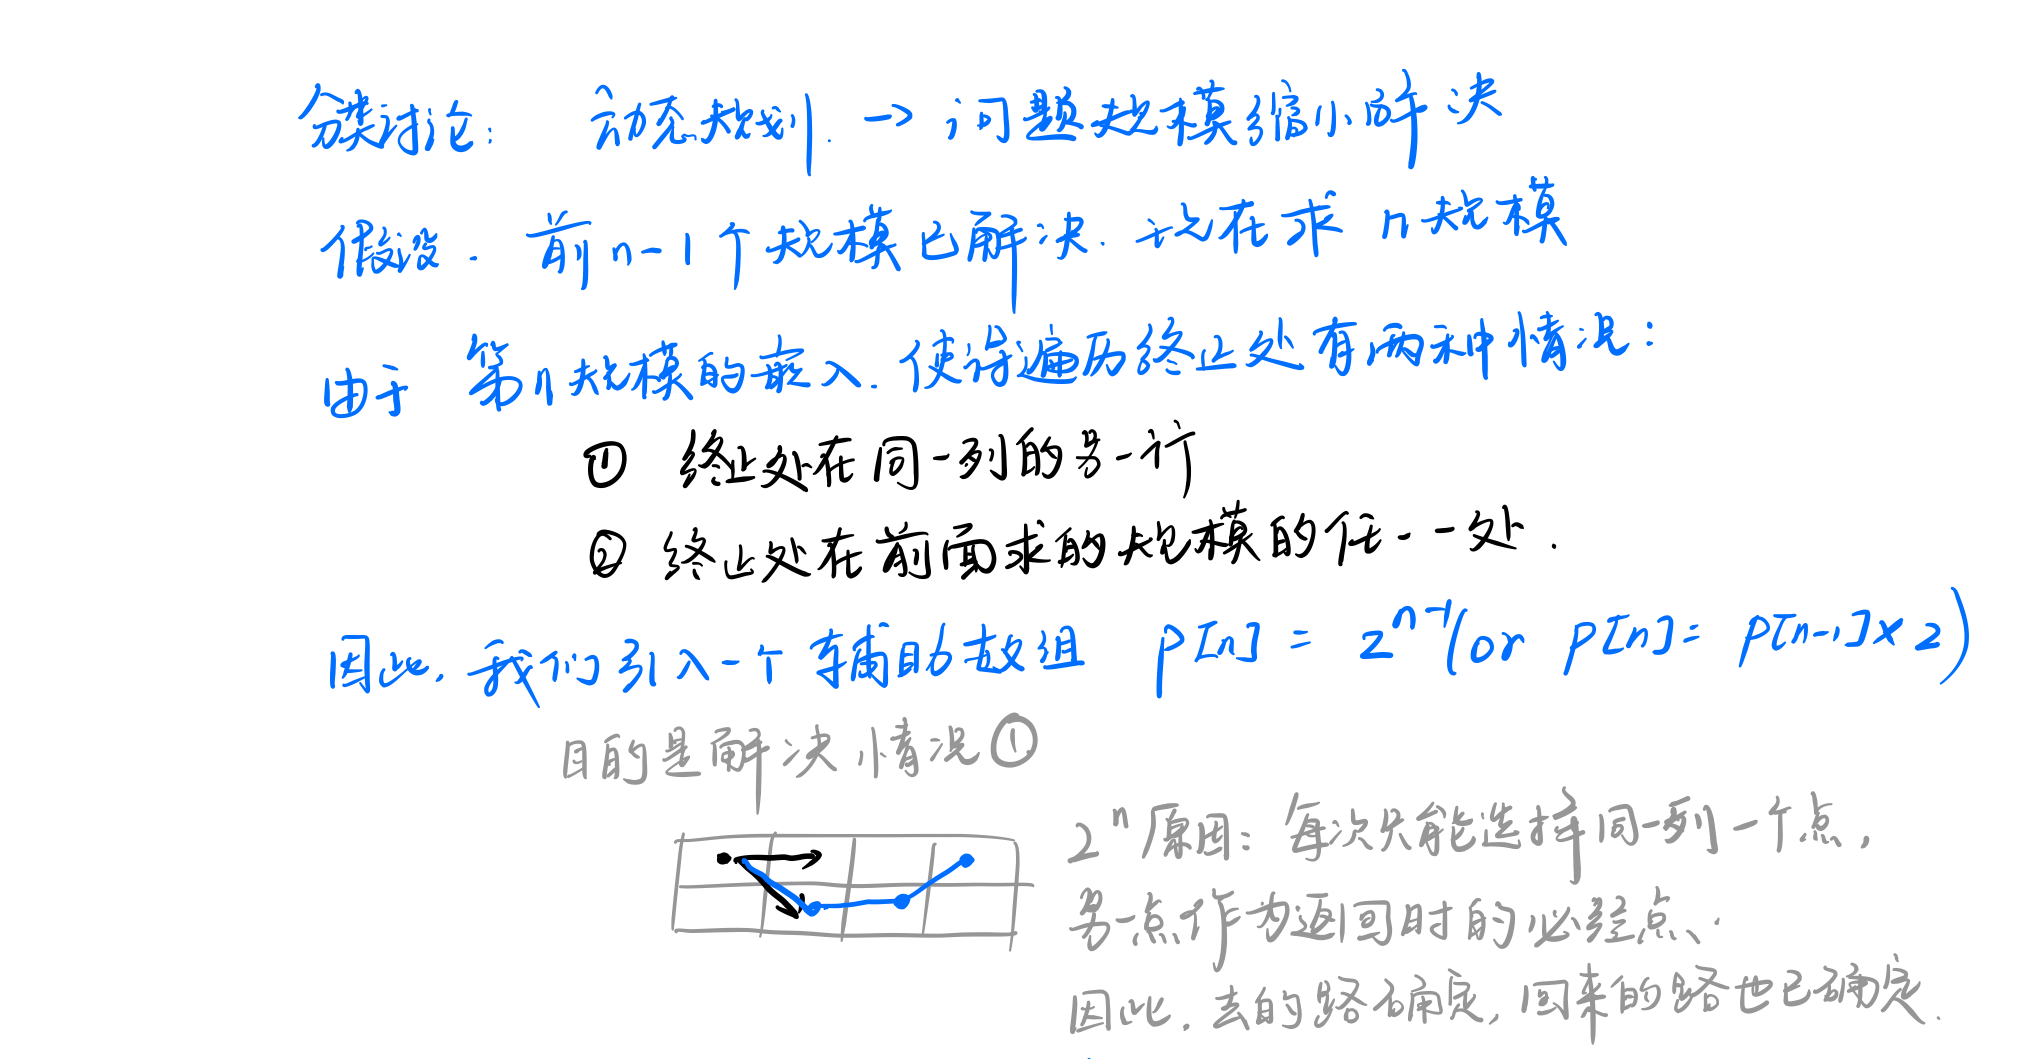 分类讨论: 动态规划. → 问题规模缩小解决
假设. 前n-1个规模已解决. 现在求 n规模
由于 第n规模的嵌入. 使得遍历终止处有两种情况:
① 终止处在同一列的另一行
② 终止处在前面求的规模的任一处.
因此, 我们引入一个辅助数组 P[n] = 2^{n-1}(or P[n] = P[n-1]×2)
目的是解决情况①
2^n 原因: 每次只能选择同一列一个点,
另一点作为返回时的必经点.
因此. 去的路确定, 回来的路也已确定.